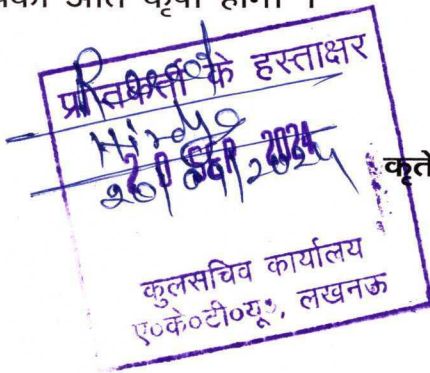 आपकी अति कृपा होगी ।
प्राप्तकर्ता के हस्ताक्षर
20 SEP 2024
20/09/2024
कृते
कुलसचिव कार्यालय
ए०के०टी०यू०, लखनऊ